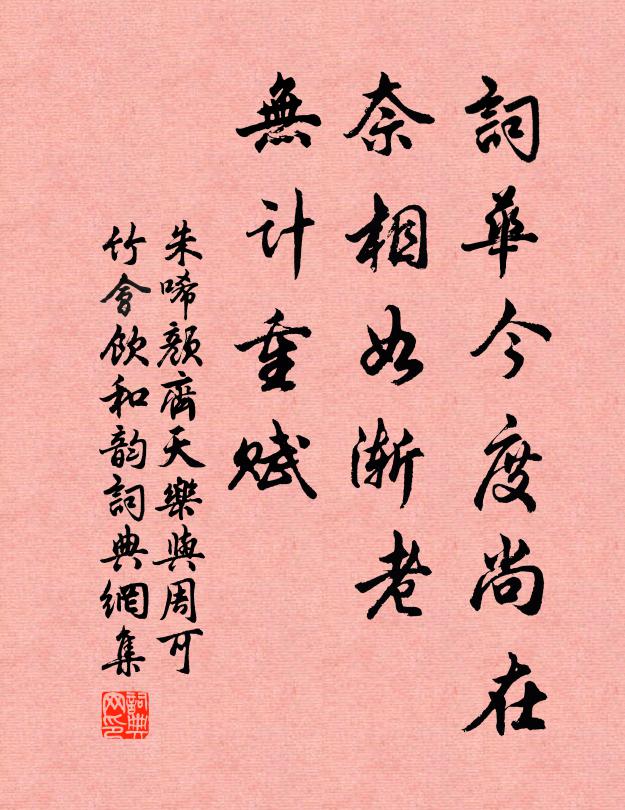 詞華今度尚在
奈相如漸老
無計重賦
朱唏顏齊天樂與周可
竹會飲和韵詞典網集
詞典网印